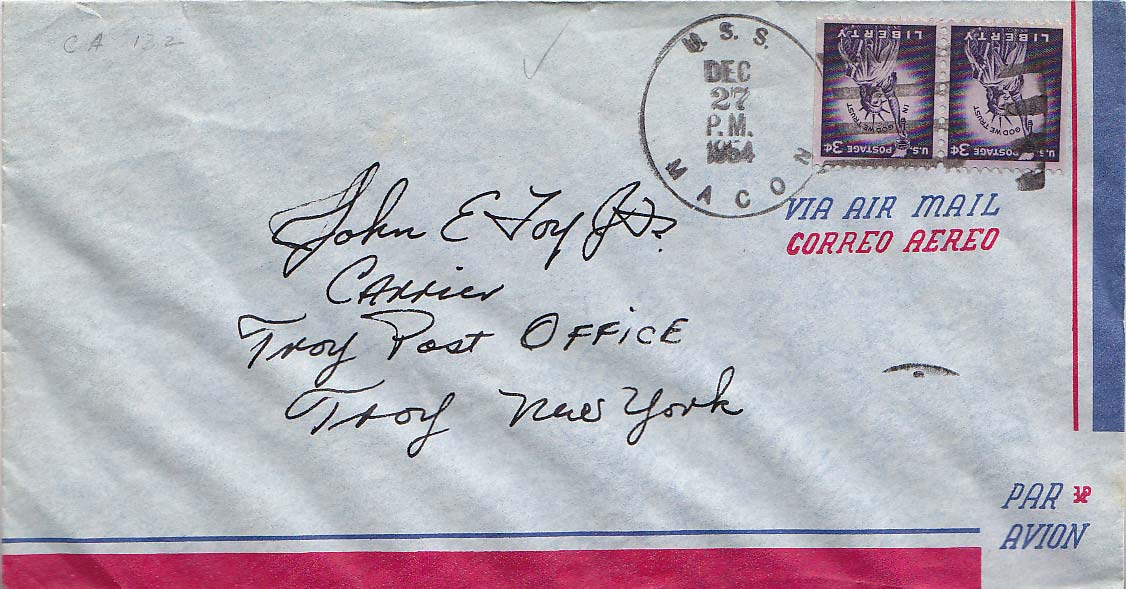 CA 132
U.S.S.
DEC
27
P.M.
1954
MACON
LIBERTY
IN GOD WE TRUST
U.S. POSTAGE 3¢
LIBERTY
IN GOD WE TRUST
U.S. POSTAGE 3¢
VIA AIR MAIL
CORREO AEREO
John E Toy Jr.
Carrier
Troy Post OFFiCE
Troy New York
PAR
AVION